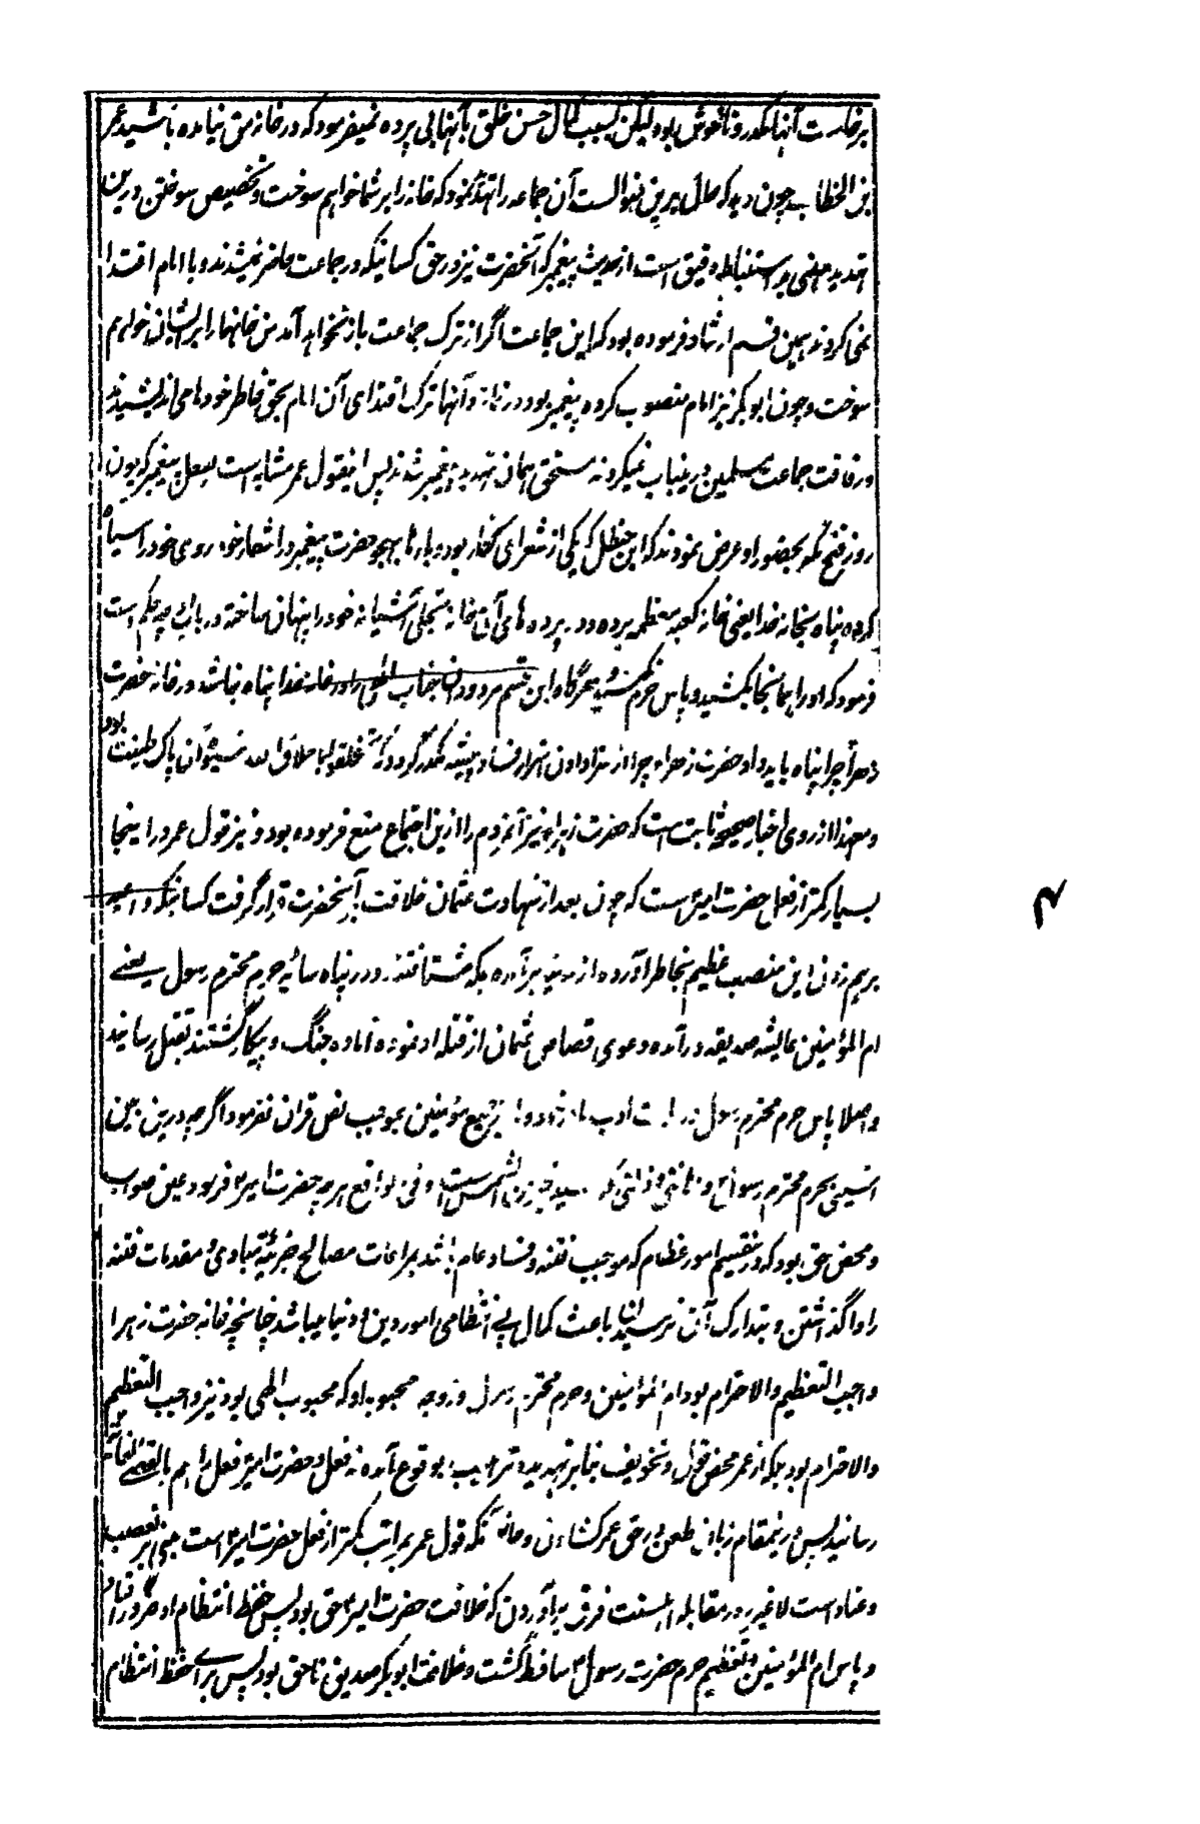 برخاست آنها مکدر و ناخوش بود لیکن بسبب کمال حسن خلق بآنها بی پرده نمیفرمود که در خانه من نیامده باشید عمر
بن الخطاب چون دید که حال برین منوال است آن جماعه را تهدید نمود که خانه را بر شما خواهم سوخت و تخصیص سوختن درین
تهدید مبنی بر استنباط دقیق است از حدیث پیغمبر که آنحضرت نیز در حق کسانیکه در جماعت حاضر نمیشدند و با امام اقتدا
نمی کردند همین قسم ارشاد فرموده بود که این جماعت اگر از ترک جماعت باز نخواهند آمد من خانها را بر ایشان خواهم
سوخت و چون ابو بکر نیز امام منصوب کرده پیغمبر بود در نماز و آنها ترک اقتدای آن امام بحق بخاطر خود ها می اندیشیدند
و رفاقت جماعت مسلمین درینباب نمیکردند مستحق همان تهدید پیغمبر شدند پس این قول عمر مشابه است بفعل پیغمبر که چون
روز فتح مکه بحضور او عرض نمودند که ابن خطل که یکی از شعرای کفار بود و بارها بهجو حضرت پیغمبر در اشعار خود روی خود را سیاه
کرده پناه بخانه خدا یعنی خانه کعبه معظمه برده و در پرده های آن خانه متجلی آشیانه خود را پنهان ساخته در باب او چه حکم است
فرمود که او را همانجا بکشید و پاس حرم نکنید و هرگاه این قسم مردودان جناب الهی را در خانه خدا پناه نباشد در خانه حضرت
زهرا چرا پناه باید داد و حضرت زهرا چرا از سزا دادن اشرار فساد پیشه مکدر گردد که تخلقوا باخلاق الله شیوه آن پاک طینت بود
و معهذا از روی اخبار صحیحه ثابت است که حضرت زهرا نیز آنمردم را ازین اجتماع منع فرموده بود و نیز قول عمر در اینجا
بسیار کمتر از فعل حضرت امیر است که چون بعد از شهادت عثمان خلافت بر آنحضرت قرار گرفت کسانیکه داعیه
برهم زدن این منصب عظیم بخاطر آورده از مدینه برآمده بمکه شتافتند و در پناه سایه حرم محترم رسول یعنی
ام المؤمنین عایشه صدیقه درآمده دعوی قصاص عثمان از قتله او نموده آماده جنگ و پیکار گشتند بقتل رسانید
و اصلا پاس حرم محترم رسول و رعایت ادب مادر خود و جمیع مؤمنین بموجب نص قران نفرمود اگرچه درین بین
آسیبی بحرم محترم رسول و اهانتی و ذلتی که رسید اظهر من الشمس است و فی الواقع هرچه حضرت امیر فرمود عین صواب
و محض حق بود که در تقسیم امور عظام که موجب فتنه و فساد عام باشد بمراعات مصالح جزئیه مبادی و مقدمات فتنه
را واگذاشتن و بتدارک آن نرسیدن باعث کمال بی انتظامی امور دین و دنیا میباشد چنانچه خانه حضرت زهرا
واجب التعظیم والاحترام بود ام المؤمنین و حرم محترم رسول و زوجه محبوبه او که محبوب الهی بود نیز واجب التعظیم
والاحترام بود بلکه از عمر محض قول و تخویف بنا بر تهدید و ترهیب بوقوع آمده نه فعل و حضرت امیر فعل را هم باقصی الغایة
رسانید پس درینمقام زبان طعن در حق عمر کشادن و حال آنکه قول عمر بمراتب کمتر از فعل حضرت امیر است مبنی بر تعصب
و عناد است لا غیر و در مقابله اهلسنت فرق برآوردن که خلافت حضرت امیر حق بود پس حفظ انتظام او ضرور افتاد
و پاس ام المؤمنین و تعظیم حرم حضرت رسول ساقط گشت و خلافت ابو بکر صدیق ناحق بود پس برای حفظ انتظام